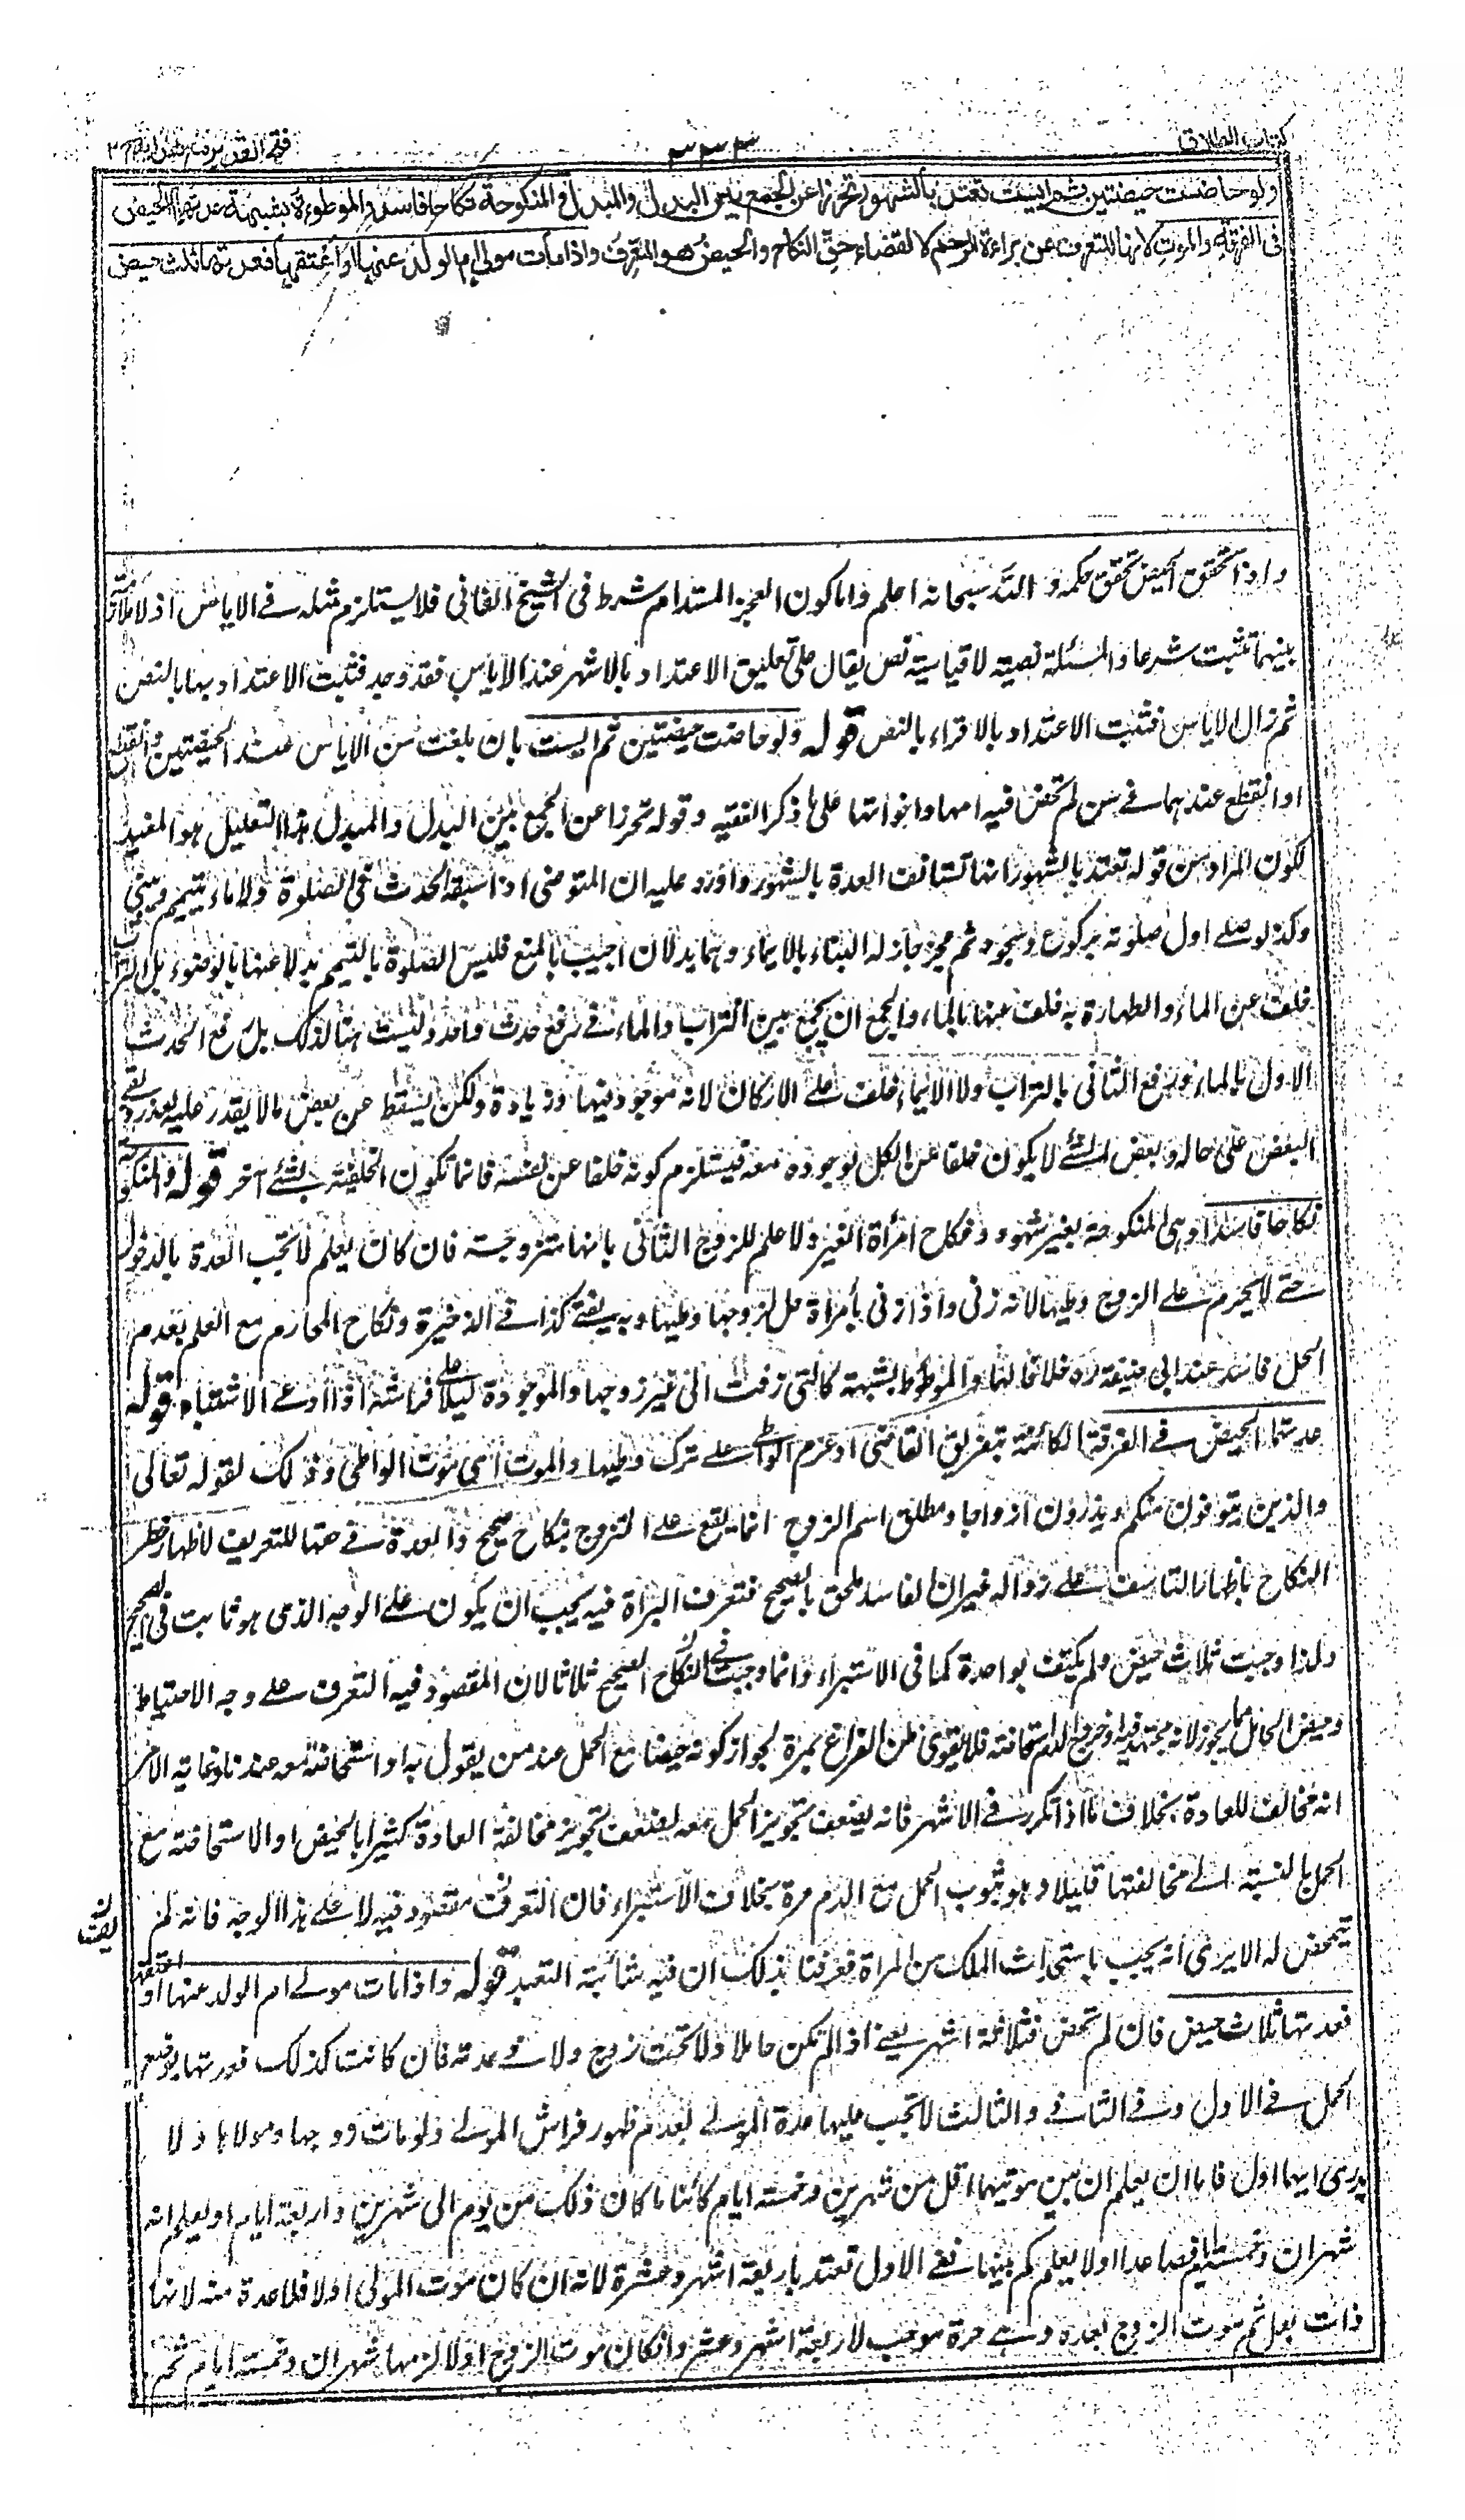 كتاب الطلاق
٣٣٣
فتح القدير
ولو حاضت حيضتين ثم ايست تعتد بالشهور تحرزا عن الجمع بين البدل والمبدل والمنكوحة نكاحا فاسدا والموطوءة بشبهة عدتهما الحيض
فى الفرقة والموت لانها للتعرف عن براءة الرحم لا لقضاء حق النكاح والحيض هو المعرف واذا مات مولى ام الولد عنها او اعتقها فعدتها ثلث حيض
واذا تحقق الحيض تحقق حكمه والله سبحانه اعلم واما كون العجز المستدام شرط فى الشيخ الفانى فلا يستلزم مثله فى الاياس اذ لا ملازمة
بينهما تثبت شرعا والمسئلة نصية لا قياسية نص يقال على تعليق الاعتداد بالاشهر عند الاياس فقد وجد فثبت الاعتداد بها بالنص
ثم زال الاياس فثبت الاعتداد بالاقراء بالنص قوله ولو حاضت حيضتين ثم ايست بان بلغت سن الاياس عند الحيضتين وانقطع
او انقطع عندهما فى سن لم تحض فيه امها واخواتها على ما ذكر الفقيه وقوله تحرزا عن الجمع بين البدل والمبدل هذا التعليل هو المفيد
لكون المراد من قوله تعتد بالشهور انها تستانف العدة بالشهور واورد عليه ان المتوضى اذا سبقه الحدث فى الصلوة ولا ماء يتيمم ويبنى
وكذا لو صلى اول صلوته بركوع وسجود ثم عجز جاز له البناء بالايماء وهما بدلان اجيب بالمنع فليس الصلوة بالتيمم بدلا عنها بالوضوء بل التراب
خلف عن الماء والطهارة به خلف عنها بالماء والجمع ان يجمع بين التراب والماء فى رفع حدث واحد وليست هنا كذلك بل رفع الحدث
الاول بالماء ورفع الثانى بالتراب ولا الايماء خلف على الاركان لانه موجود فيها وزيادة ولكن يسقط عن بعض ما لا يقدر عليه بعذر وبقى
البعض على حاله وبعض الشئ لا يكون خلفا عن الكل لوجوده معه فيستلزم كونه خلفا عن نفسه فانما تكون الخلفية بشئ آخر قوله والمنكوحة
نكاحا فاسدا وهى المنكوحة بغير شهود ونكاح امرأة الغير ولا علم للزوج الثانى بانها متزوجة فان كان يعلم لا تجب العدة بالدخول
حتى لا يحرم على الزوج وطيها لانه زنى واذا زنى بامراة حل لزوجها وطيها وبه يفتى كذا فى الذخيرة ونكاح المحارم مع العلم بعدم
الحل فاسد عند ابى حنيفة ره خلافا لهما والموطوءة بشبهة كالتى زفت الى غير زوجها والموجودة ليلا على فراشه اذا ادعى الاشتباه قوله
عدتهما الحيض فى الفرقة الكائنة بتفريق القاضى او عزم الواطى على ترك وطيها والموت اى موت الواطى وذلك لقوله تعالى
والذين يتوفون منكم ويذرون ازواجا ومطلق اسم الزوج انما يقع على التزوج بنكاح صحيح والعدة فى حقها للتعريف لاظهار خطر
النكاح باظهار التاسف على زواله غير ان الفاسد ملحق بالصحيح فتعرف البراة فيه يجب ان يكون على الوجه الذى هو ثابت فى الصحيح
ولذا وجبت ثلاث حيض ولم يكتف بواحدة كما فى الاستبراء وانما وجبت فى النكاح الصحيح ثلاثا لان المقصود فيه التعرف على وجه الاحتياط
وحيض الحامل مما يجوز لانه مجتهد فيه وخروج الدم استحاضة فلا يقوى ظن الفراغ بمرة لجواز كونه حيضا مع الحمل عند من يقول به او استحاضة معه عندنا وغاية الامر
انه مخالف للعادة بخلاف ما اذا تكرر فى الاشهر فانه يضعف تجويز الحمل معه لضعف تجويز مخالفة العادة كثيرا بالحيض او الاستحاضة مع
الحمل بالنسبة الى مخالفتها قليلا وهو ثبوت الحمل مع الدم مرة بخلاف الاستبراء فان التعرف مقصود فيه لا على هذا الوجه فانه لم
يتمحض له الا يرى انه يجب باستحداث الملك من المراة فعرفنا بذلك ان فيه شائبة التعبد قوله واذا مات مولى ام الولد عنها او اعتقها
فعدتها ثلاث حيض فان لم تحض فثلاثة اشهر يعنى اذا لم تكن حاملا ولا تحت زوج ولا فى عدته فان كانت كذلك فعدتها بوضع
الحمل فى الاول وفى الثانى والثالث لا تجب عليها عدة المولى لعدم ظهور فراش المولى ولو مات زوجها ومولاها ولا
يدرى ايهما اول فاما ان يعلم ان بين موتيهما اقل من شهرين وخمسة ايام كائنا ما كان ذلك من يوم الى شهرين واربعة ايام او يعلم انه
شهران وخمسة ايام فصاعدا او لا يعلم كم بينهما ففى الاول تعتد باربعة اشهر وعشرة لانه ان كان موت المولى اولا فلا عدة منه لانها
ذات بعل ثم موت الزوج بعده وهى حرة موجب لاربعة اشهر وعشر وان كان موت الزوج اولا لزمها شهران وخمسة ايام ثم